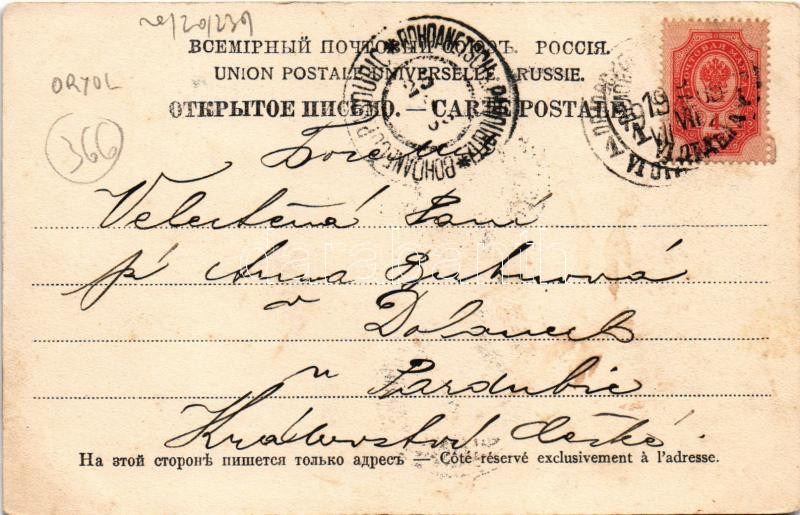 ВСЕМІРНЫЙ ПОЧТОВЫЙ СОЮЗЪ. РОССІЯ.
UNION POSTALE UNIVERSELLE. RUSSIE.
ORYOL
ОТКРЫТОЕ ПИСЬМО. — CARTE POSTALE.
366
Velectěná Paní
pí Anna
v Dolanech
u Pardubic
Království České.
На этой сторонѣ пишется только адресъ — Côté réservé exclusivement à l'adresse.